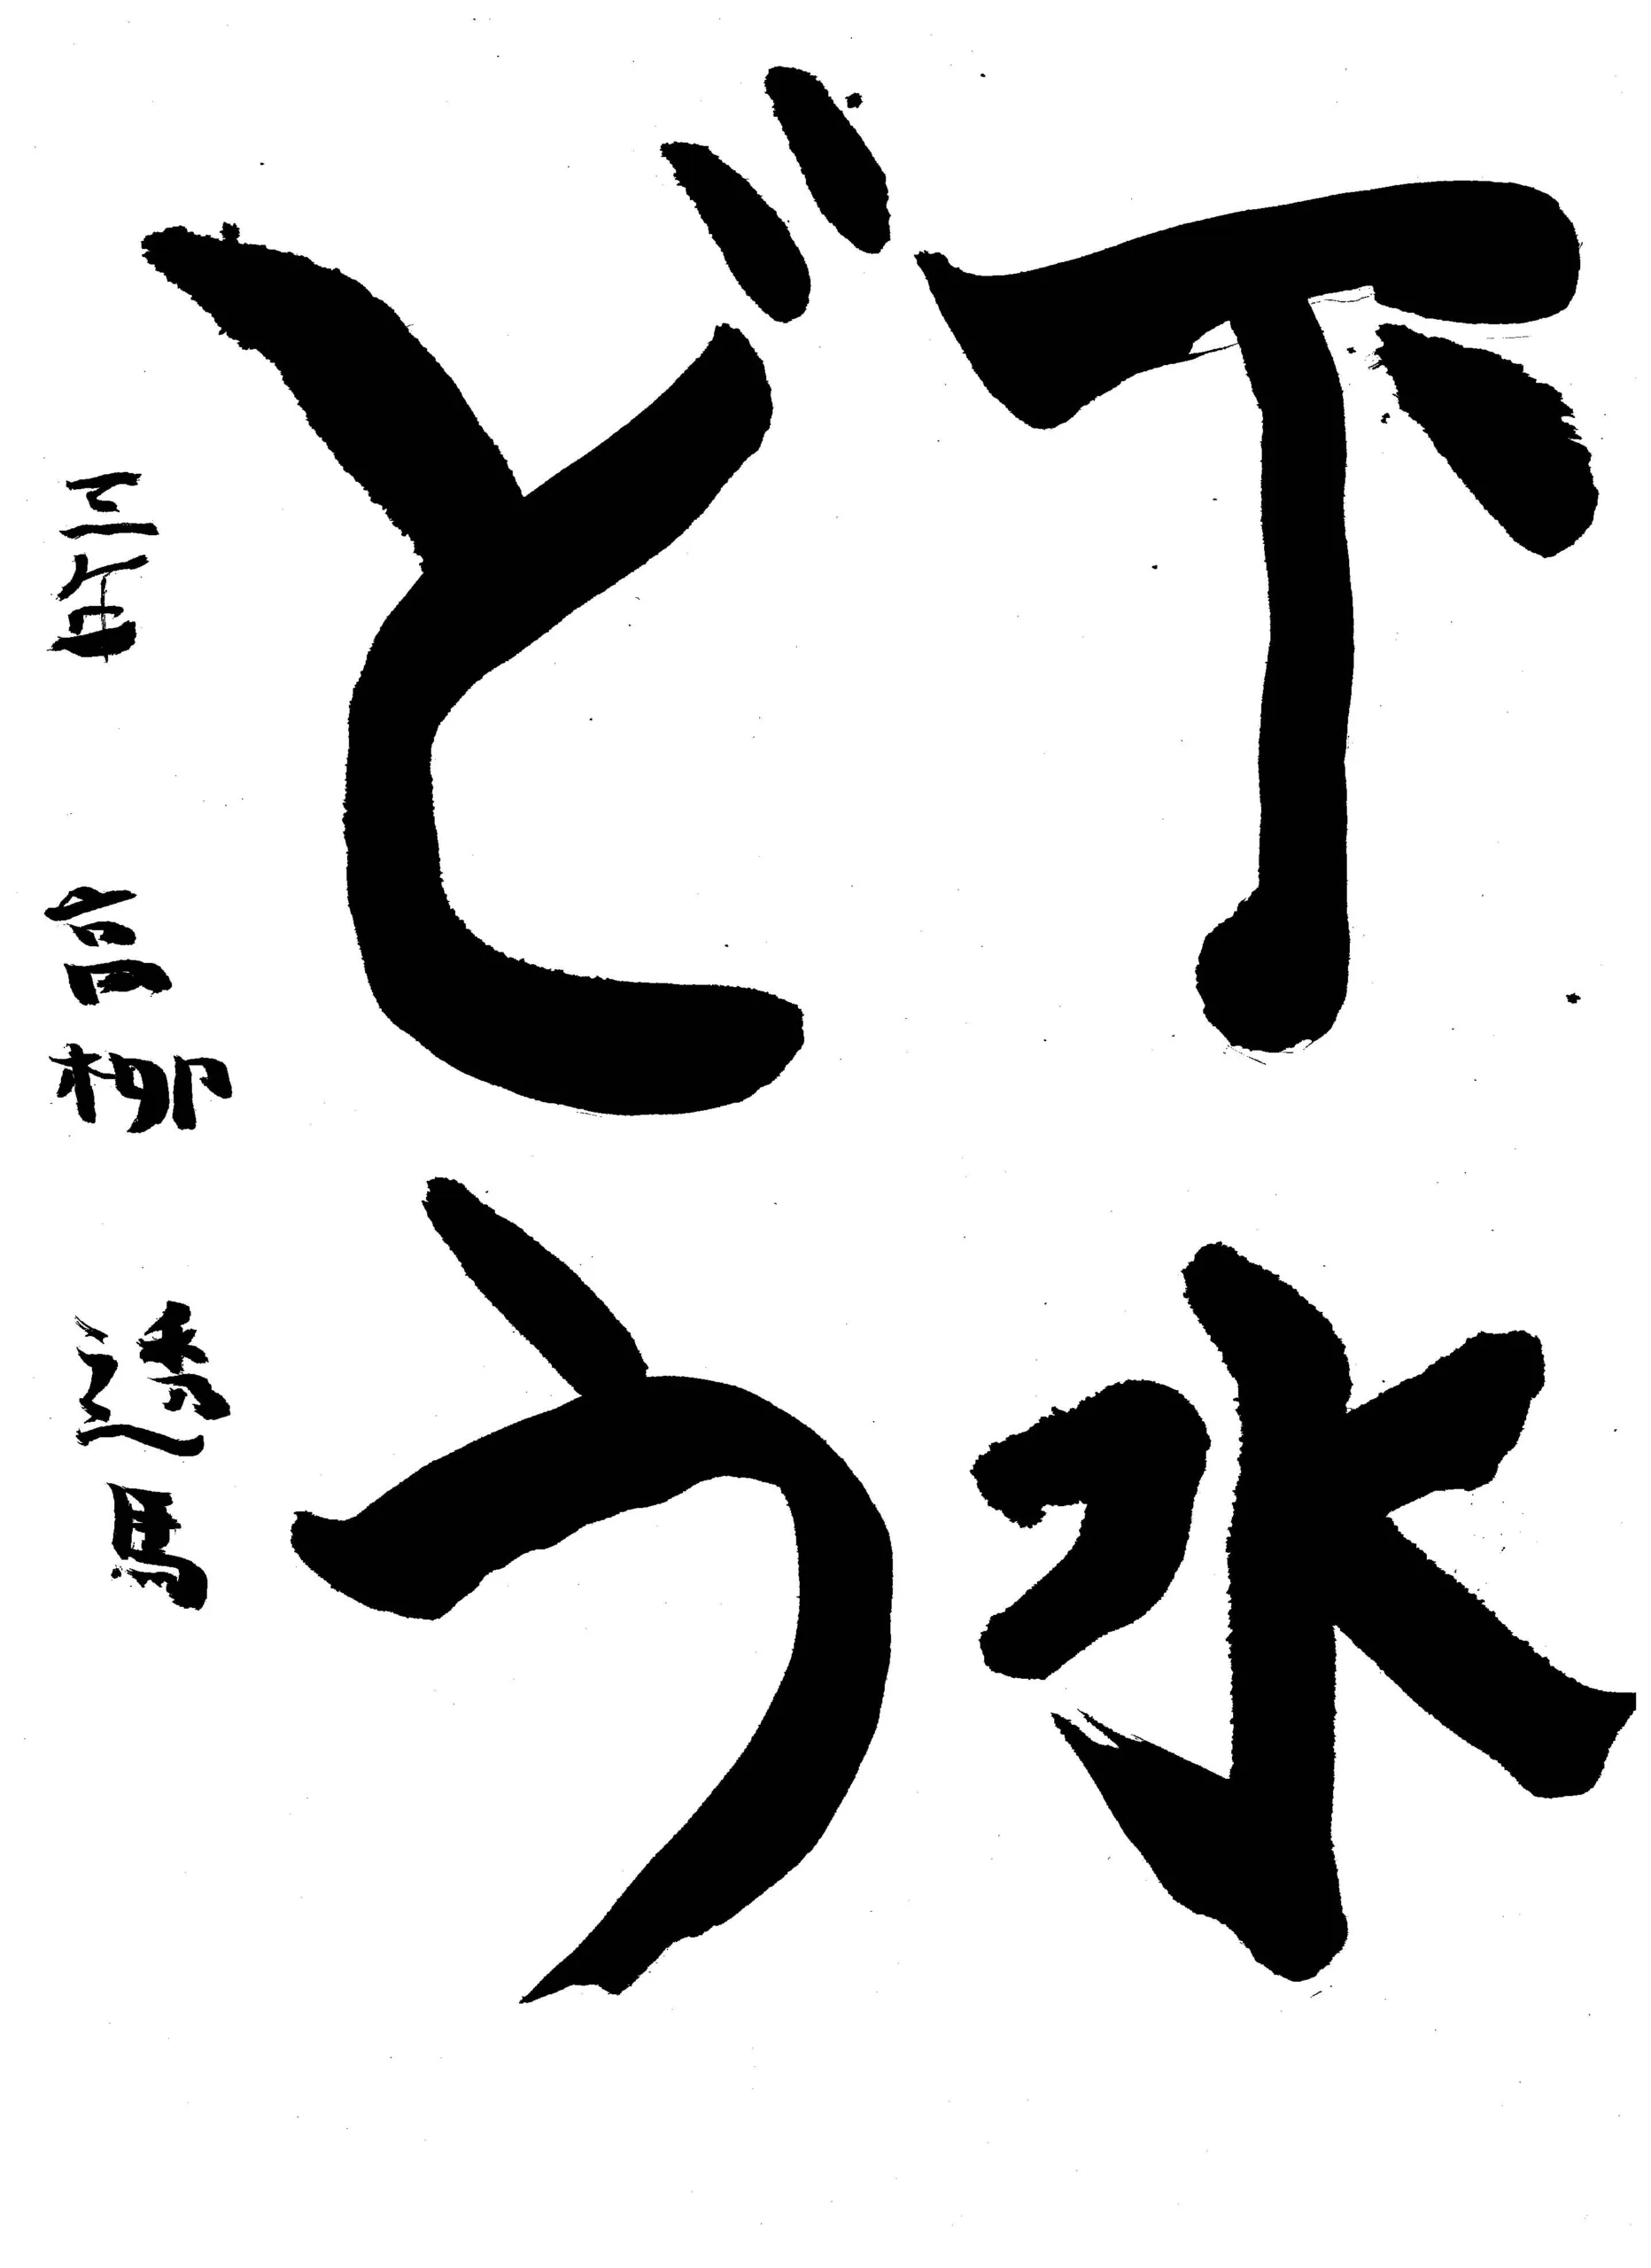 下水
どう
三年 青柳 透馬